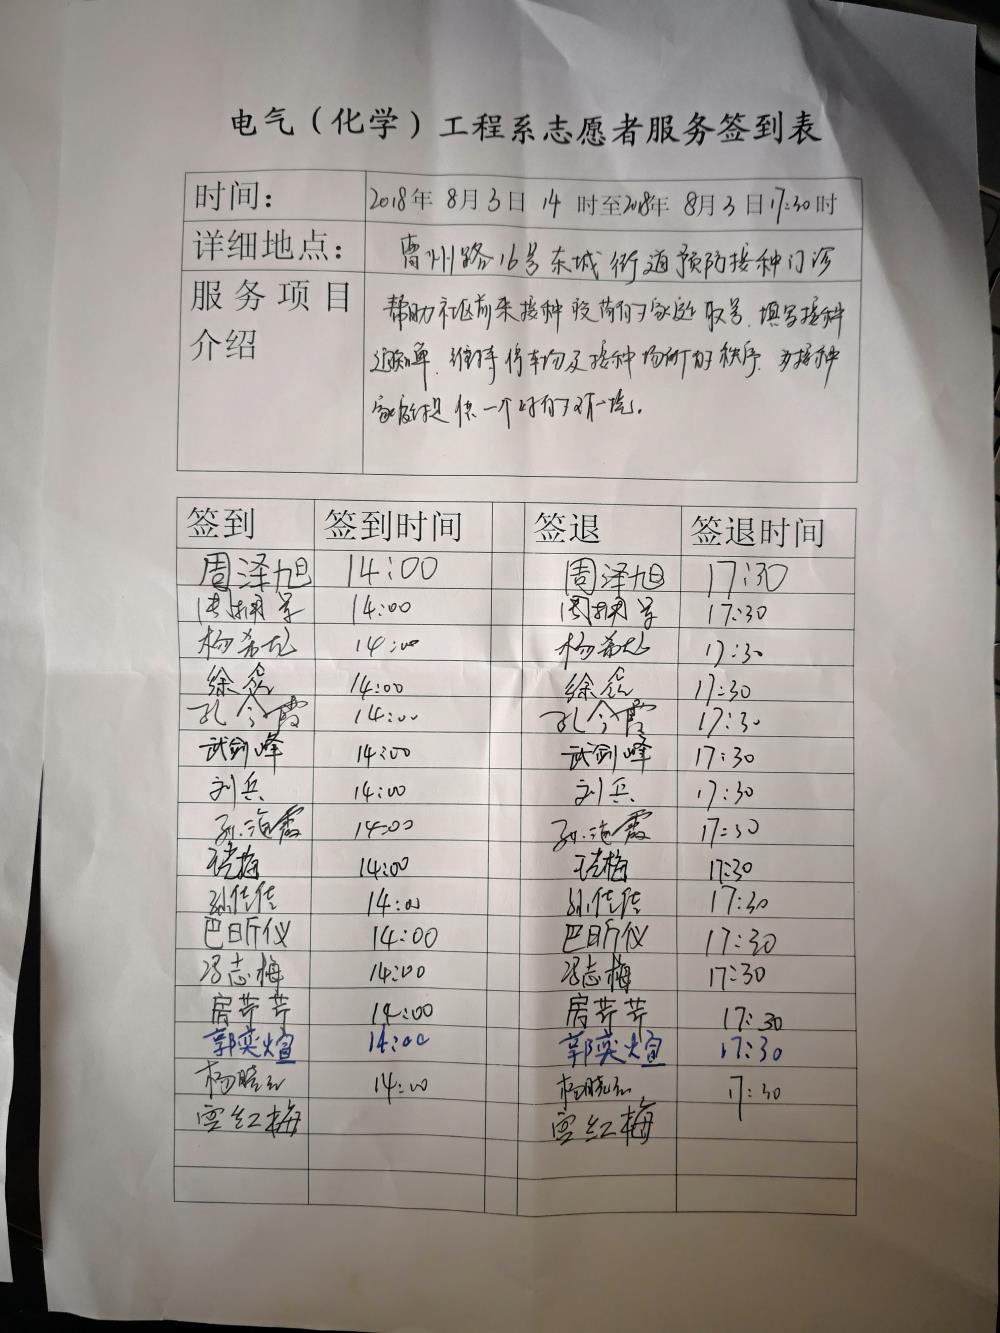 电气（化学）工程系志愿者服务签到表
时间： 2018年 8月 3日 14 时至2018年 8月 3日 17:30时
详细地点： 曹州路16号东城街道预防接种门诊
服务项目 帮助社区前来接种疫苗的家庭取号、填写接种
介绍 通知单、维持停车场及接种场所的秩序，为接种
家庭提供一个好的环境。
签到 签到时间 签退 签退时间
周泽旭 14:00 周泽旭 17:30
14:00 17:30
杨希 14:00 杨希 17:30
徐磊 14:00 徐磊 17:30
孔令霞 14:00 孔令霞 17:30
武剑峰 14:00 武剑峰 17:30
刘兵 14:00 刘兵 17:30
孙海霞 14:00 孙海霞 17:30
14:00 17:30
孙佳佳 14:00 孙佳佳 17:30
巴昕仪 14:00 巴昕仪 17:30
冯志梅 14:00 冯志梅 17:30
房芹芹 14:00 房芹芹 17:30
郭奕煊 14:00 郭奕煊 17:30
杨晓红 14:00 杨晓红 17:30
红梅 红梅